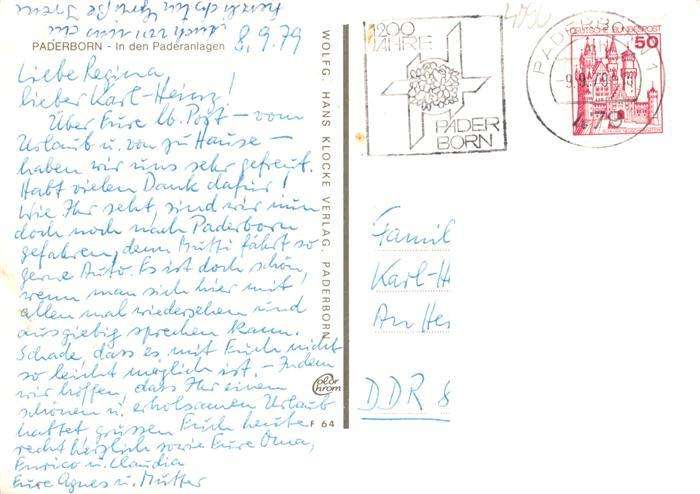 PADERBORN - In den Paderanlagen
8.9.79
Liebe Regina,
lieber Karl-Heinz!
Über Eure lb. Post – vom
Urlaub u. von zu Hause –
haben wir uns sehr gefreut.
Habt vielen Dank dafür!
Wie Ihr seht, sind wir nun
doch noch nach Paderborn
gefahren, denn Mutti fährt so
gerne Auto. Es ist doch schön,
wenn man sich hier mit
allen mal wiedersehen und
ausgiebig sprechen kann.
Schade, dass es mit Euch nicht
so leicht möglich ist. – Indem
wir hoffen, dass Ihr einen
schönen u. erholsamen Urlaub
hattet grüssen Euch heute
recht herzlich sowie Eure Oma,
Enrico u. Claudia
Eure Agnes u. Mutter
WOLFG. HANS KLOCKE VERLAG, PADERBORN
color
chrom
F 64
1200
JAHRE
PADER
BORN
PADERBORN 1
9.9.79
479
DEUTSCHE BUNDESPOST
50
Famil
Karl-H
An He
DDR 8